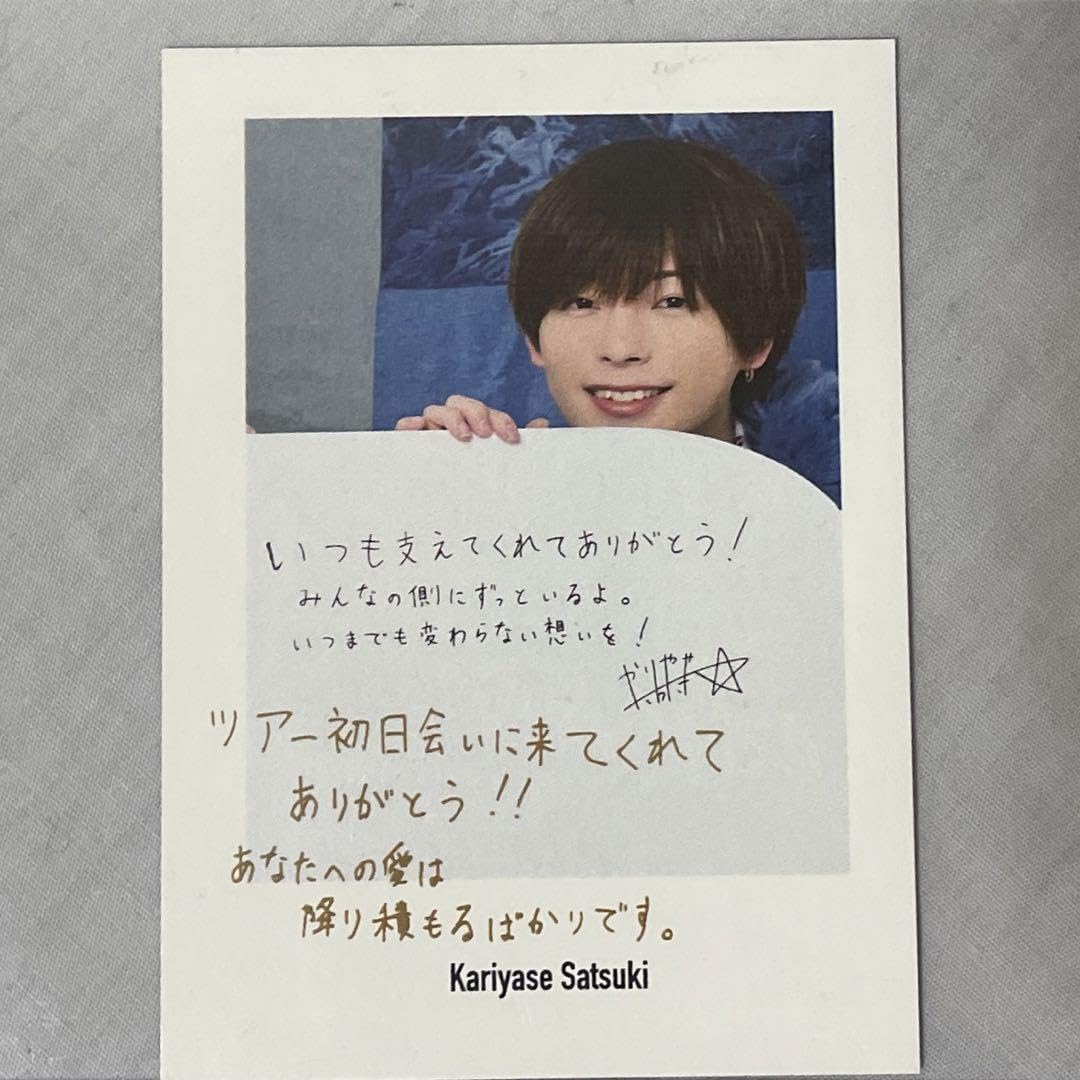 いつも支えてくれてありがとう!
みんなの側にずっといるよ。
いつまでも変わらない想いを!
ツアー初日会いに来てくれて
ありがとう!!
あなたへの愛は
降り積もるばかりです。
Kariyase Satsuki